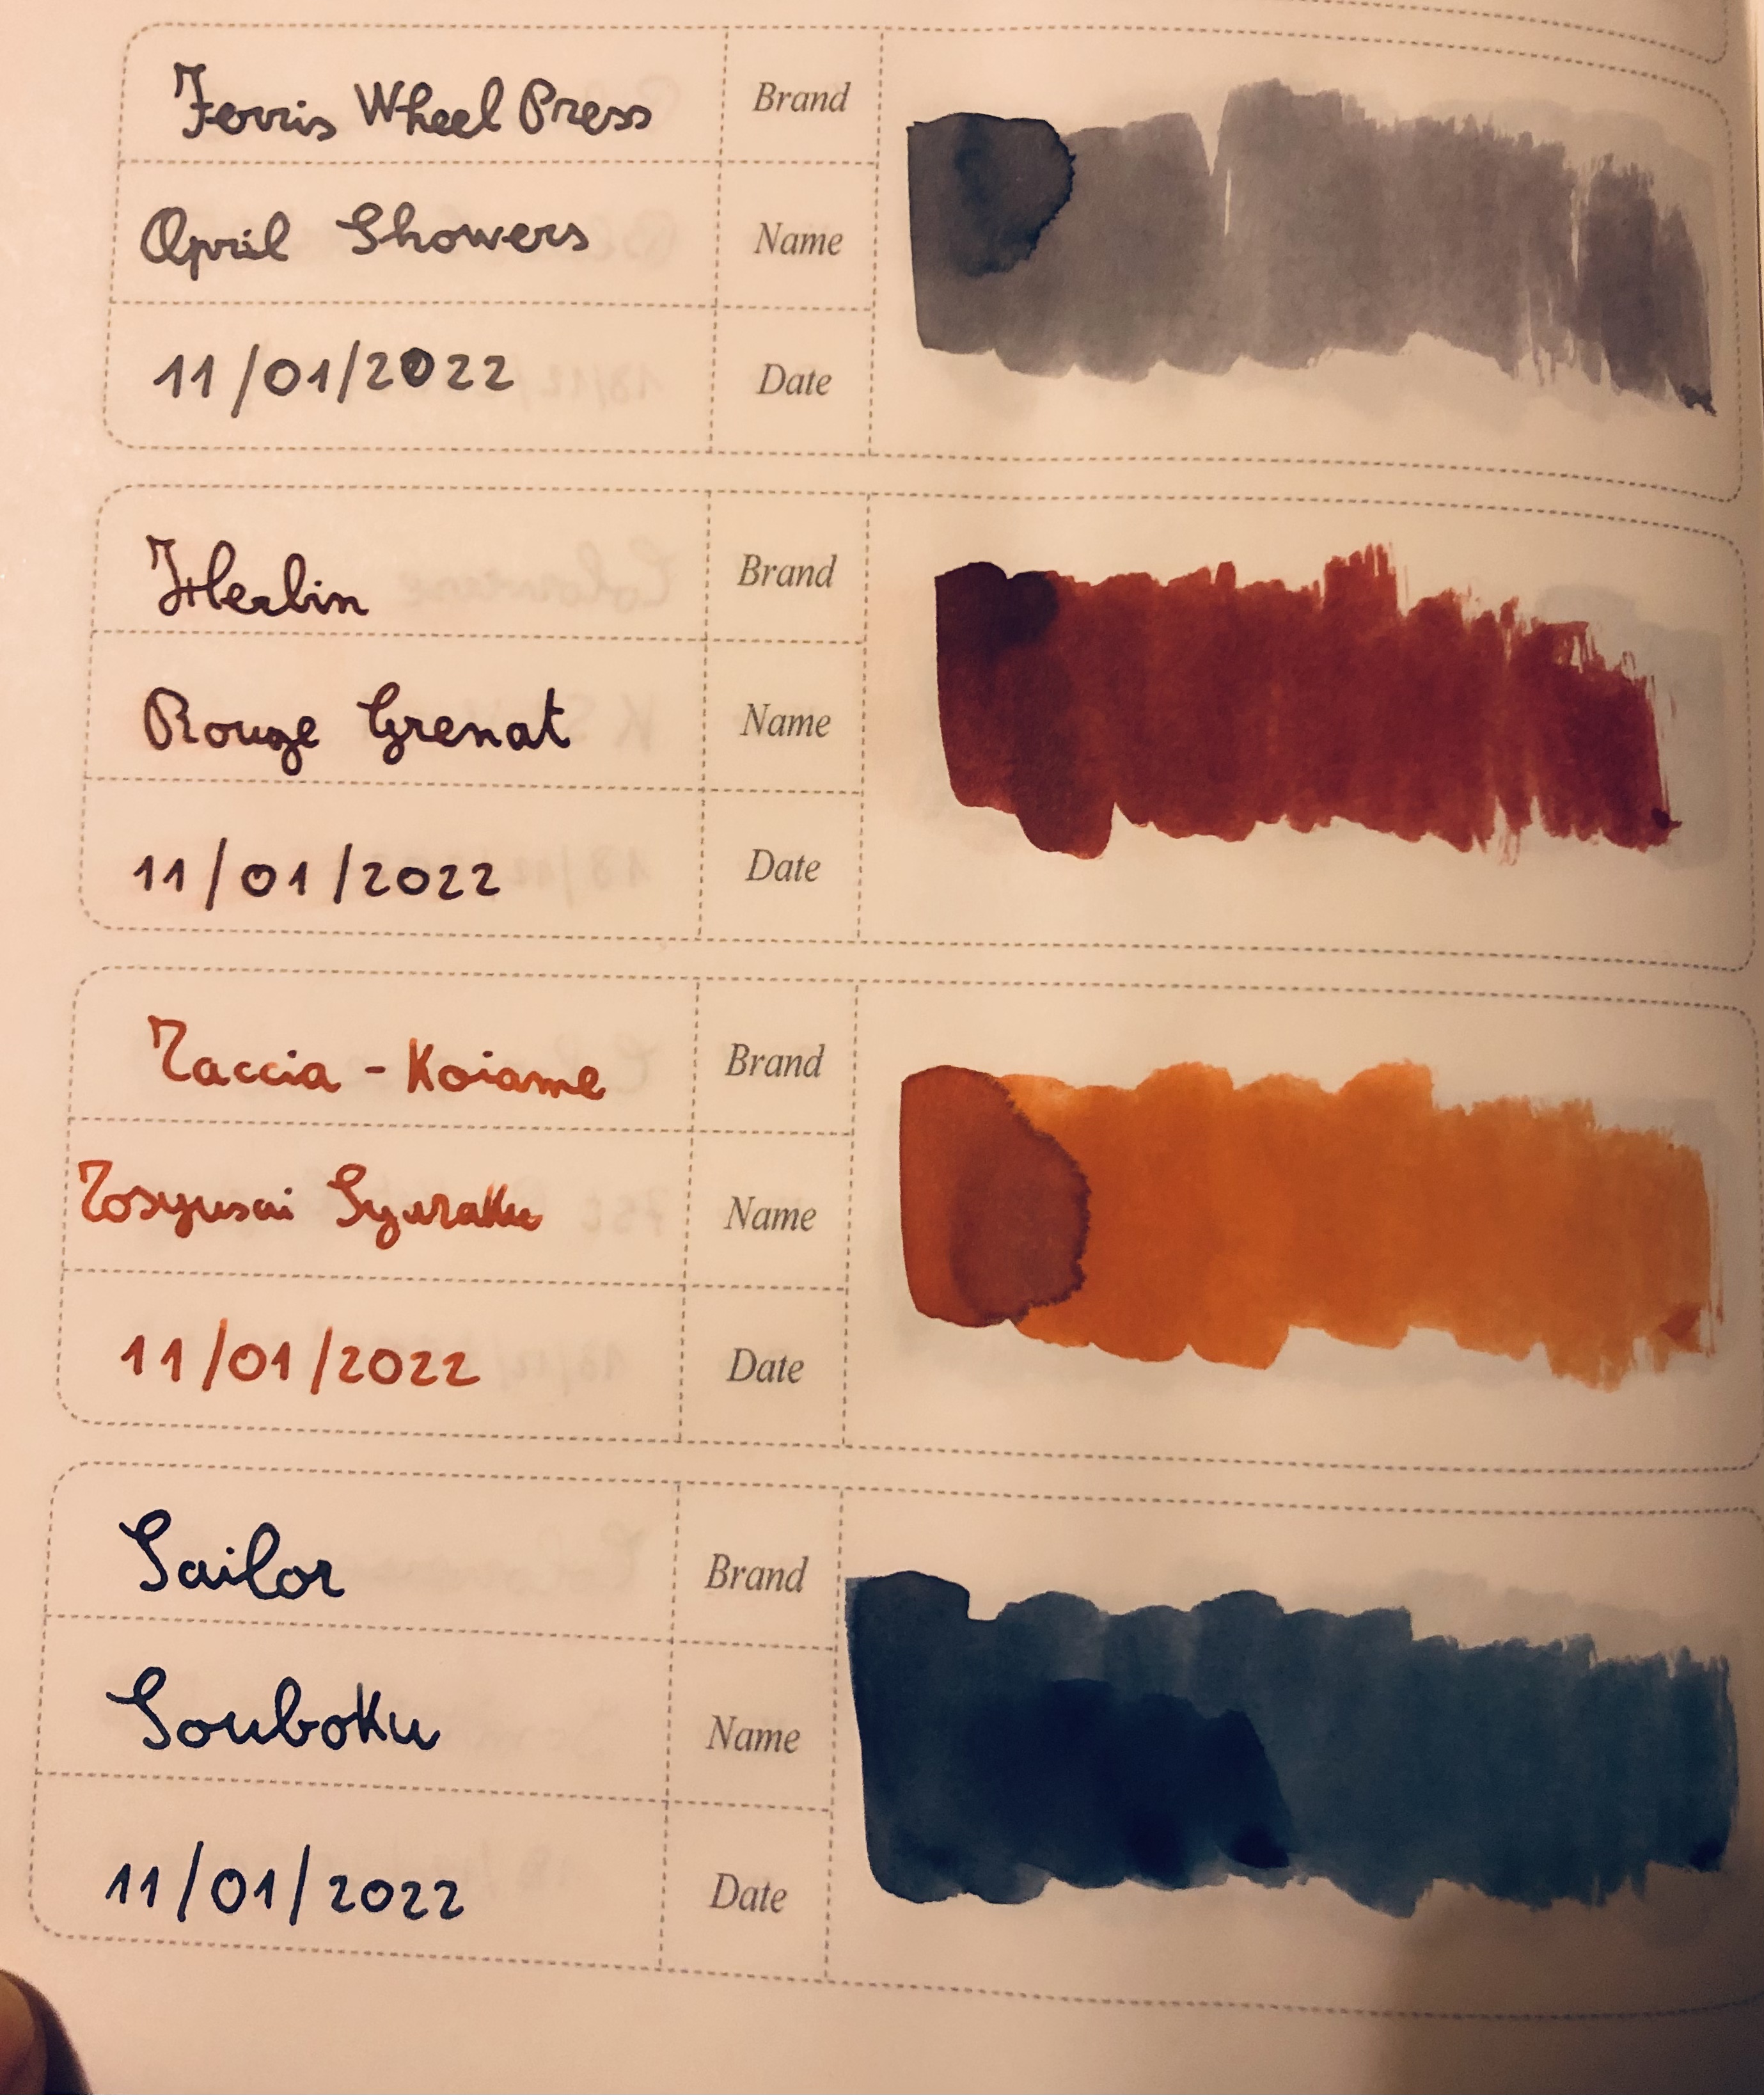 Ferris Wheel Press Brand
April Showers Name
11/01/2022 Date
JHerbin Brand
Rouge Grenat Name
11/01/2022 Date
Taccia - Koiame Brand
Tosyusai Syuraku Name
11/01/2022 Date
Sailor Brand
Souboku Name
11/01/2022 Date